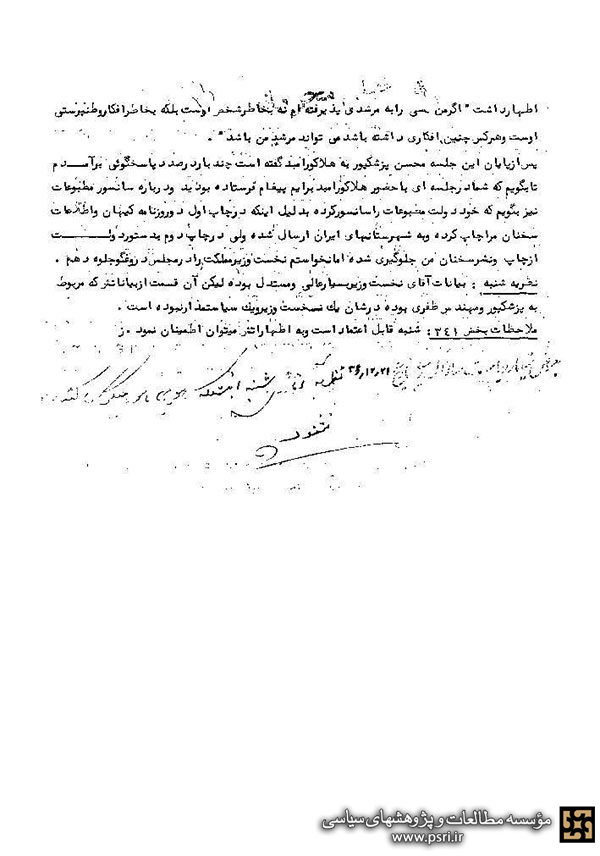 اظهار داشت " اگر من کسی را به مرشدی پذیرفته ام نه بخاطر شخص اوست بلکه بخاطر افکار وطنپرستی
اوست و هر کس چنین افکاری داشته باشد می تواند مرشد من باشد " .
پس از پایان این جلسه محسن پزشکپور به هلاکو رامبد گفته است چند بار در صدد پاسخگوئی برآمدم
تا بگویم که شما در جلسه ای با حضور هلاکو رامبد برایم پیغام فرستاده بودید و درباره سانسور مطبوعات
نیز بگویم که خود دولت مطبوعات را سانسور کرده بدلیل اینکه در چاپ اول دو روزنامه کیهان و اطلاعات
سخنان مرا چاپ کرده و به شهرستانهای ایران ارسال شده ولی در چاپ دوم بدستور دولت
از چاپ و نشر سخنان من جلوگیری شده اما نخواستم نخست وزیر مملکت را در مجلس دروغگو جلوه دهم .
نظریه شنبه : بیانات آقای نخست وزیر بسیار عالی و مستدل بوده لیکن آن قسمت از بیاناتش که مربوط
به پزشکپور و مهندس ظفری بوده در شان یک نخست وزیر و یک سیاستمدار نبوده است .
ملاحظات بخش ۳۴۱ : شنبه قابل اعتماد است و به اظهاراتش میتوان اطمینان نمود . ز
۳۶/۱۲/۲۱
شنبه
مؤسسه مطالعات و پژوهشهای سیاسی
www.psri.ir